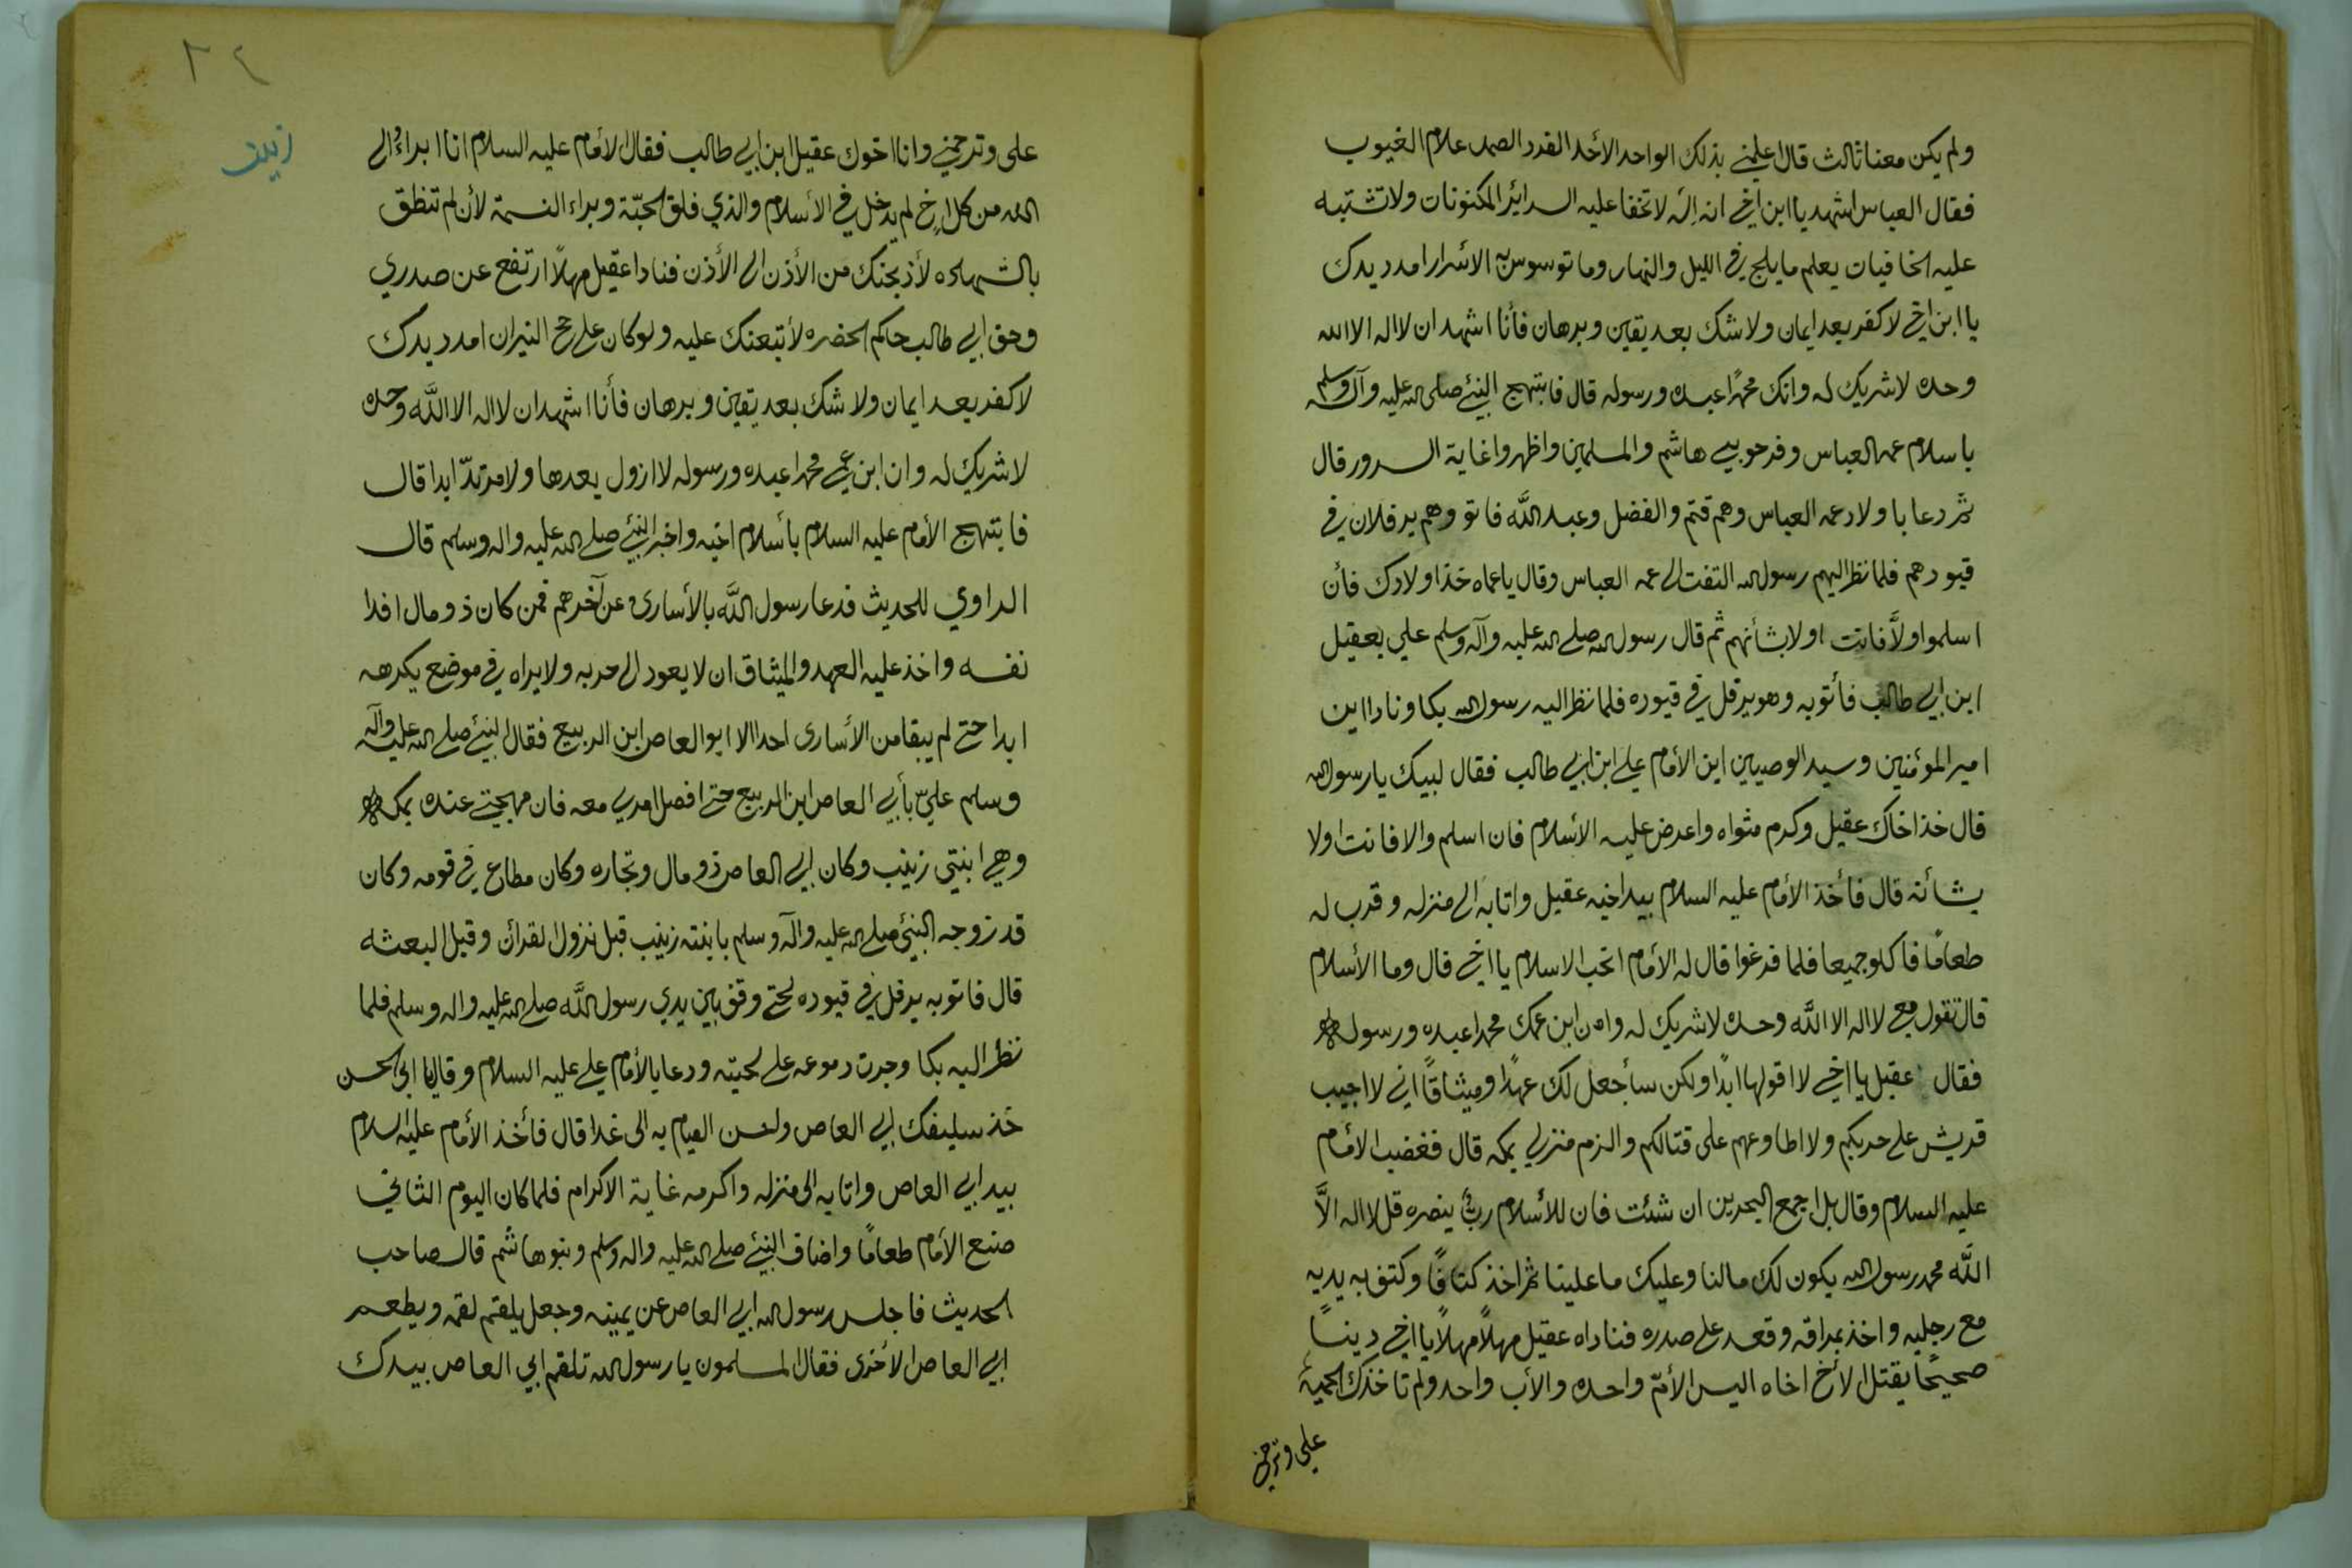 ولم يكن معنا ثالث قال اعلمني بذلك الواحد الاحد الفرد الصمد علام الغيوب
فقال العباس اشهد يا ابن اخي انه اله لا تخفا عليه السرائر المكنونات ولا تشتبه
عليه الخافيات يعلم ما يلج في الليل والنهار وما توسوس به الاسرار امدد يدك
يا ابن اخي لا كفر بعد ايمان ولا شك بعد يقين وبرهان فأنا اشهد ان لا اله الا الله
وحده لا شريك له وانك محمدًا عبده ورسوله قال فابتهج النبي صلى الله عليه وآله وسلم
باسلام عمه العباس وفرحو بني هاشم والمسلمين واظهروا غاية السرور قال
ثم دعا باولاد عمه العباس وهم قثم والفضل وعبد الله فاتو وهم يرفلان في
قيودهم فلما نظر اليهم رسول الله التفت الى عمه العباس وقال يا عماه خذ اولادك فأن
اسلموا ولَّا فانت اولا بشأنهم ثم قال رسول الله صلى الله عليه وآله وسلم علي بعقيل
ابن ابي طالب فأتوبه وهو يرفل في قيوده فلما نظر اليه رسول الله بكا ونادا اين
امير الموئمنين وسيد الوصيين اين الأمام علي ابن ابي طالب فقال لبيك يا رسول الله
قال خذ اخاك عقيل وكرم مثواه واعرض عليه الأسلام فان اسلم والا فانت اولا
بشأنه قال فأخذ الأمام عليه السلام بيد اخيه عقيل واتا به الى منزله وقرب له
طعامًا فاكلو جميعا فلما فرغوا قال له الأمام اتحب الاسلام يا اخي قال وما الأسلام
قال تقول معي لا اله الا الله وحده لا شريك له وان ابن عمك محمدا عبده ورسوله
فقال عقيل يا اخي لا اقولها ابدًا ولكن سأجعل لك عهدًا وميثاقًا اني لا اجيب
قريش على حربكم ولا اطاوعهم على قتالكم والزم منزلي بمكه قال فغضب الامام
عليه السلام وقال بل اجمع البحرين ان شئت فان للأسلام ربٌ ينصره قل لا اله الَّا
الله محمد رسول الله يكون لك مالنا وعليك ما علينا ثم اخذ كتافًا وكتف به يديه
مع رجليه واخذ بمراقه وقعد على صدره فناداه عقيل مهلًا مهلًا يا اخي دينًا
صحيحًا يقتل الأخ اخاه اليس الأمّ واحده والأب واحد ولم تاخذك الحمية
علي وترحمني
٢٤
زينب
على وترحمني وانا اخوك عقيل ابن ابي طالب فقال الأمام عليه السلام انا ابراءُ الى
الله من كل اخٍ لم يدخل في الأسلام والذي فلق الحبّة وبراء النسمة لأن لم تنطق
بالشهاده لأذبحنك من الأذن الى الأذن فنادا عقيل مهلًا ارتفع عن صدري
وحق ابي طالب حاكم الحضره لأتبعنك عليه ولو كان على حمح النيران امدد يدك
لا كفر بعد ايمان ولا شك بعد يقين وبرهان فأنا اشهد ان لا اله الا اللَّه وحده
لا شريك له وان ابن عمي محمدا عبده ورسوله لا ازول بعدها ولا مرتدّ ابدا قال
فابتهج الأمام عليه السلام بأسلام اخيه واخبر النبي صلى الله عليه واله وسلم قال
الراوي للحديث فدعا رسول اللَّه بالأسارى عن آخرهم فمن كان ذو مال افدا
نفسه واخذ عليه العهد والميثاق ان لا يعود الى حربه ولا يراه في موضع يكرهه
ابدا حتى لم يبقا من الأسارى احدا الا ابو العاص ابن الربيع فقال النبي صلى الله عليه وآله
وسلم عليّ بأبي العاص ابن الربيع حتى افصل امري معه فان مهجتي عنده بمكه
وهي ابنتي زينب وكان ابي العاص ذو مال وتجاره وكان مطاع في قومه وكان
قد زوجه النبي صلى الله عليه وآله وسلم بابنته زينب قبل نزول القرأن وقبل البعثه
قال فاتو به يرفل في قيوده حتى وقف بين يدي رسول اللَّه صلى الله عليه واله وسلم فلما
نظر اليه بكا وجرت دموعه على لحيته ودعا بالأمام علي عليه السلام وقال يا ابى الحسن
خذ سليفك ابي العاص ولحسن القيام به الى غدا قال فأخذ الأمام عليه السلام
بيد ابي العاص واتا به الى منزله واكرمه غاية الاكرام فلما كان اليوم الثاني
صنع الأمام طعامًا واضاف النبي صلى الله عليه واله وسلم وبنو هاشم قال صاحب
الحديث فاجلس رسول الله ابي العاص عن يمينه وجعل يلقم لقمه ويطعم
ابي العاص الأخرى فقال المسلمون يا رسول الله تلقم ابي العاص بيدك